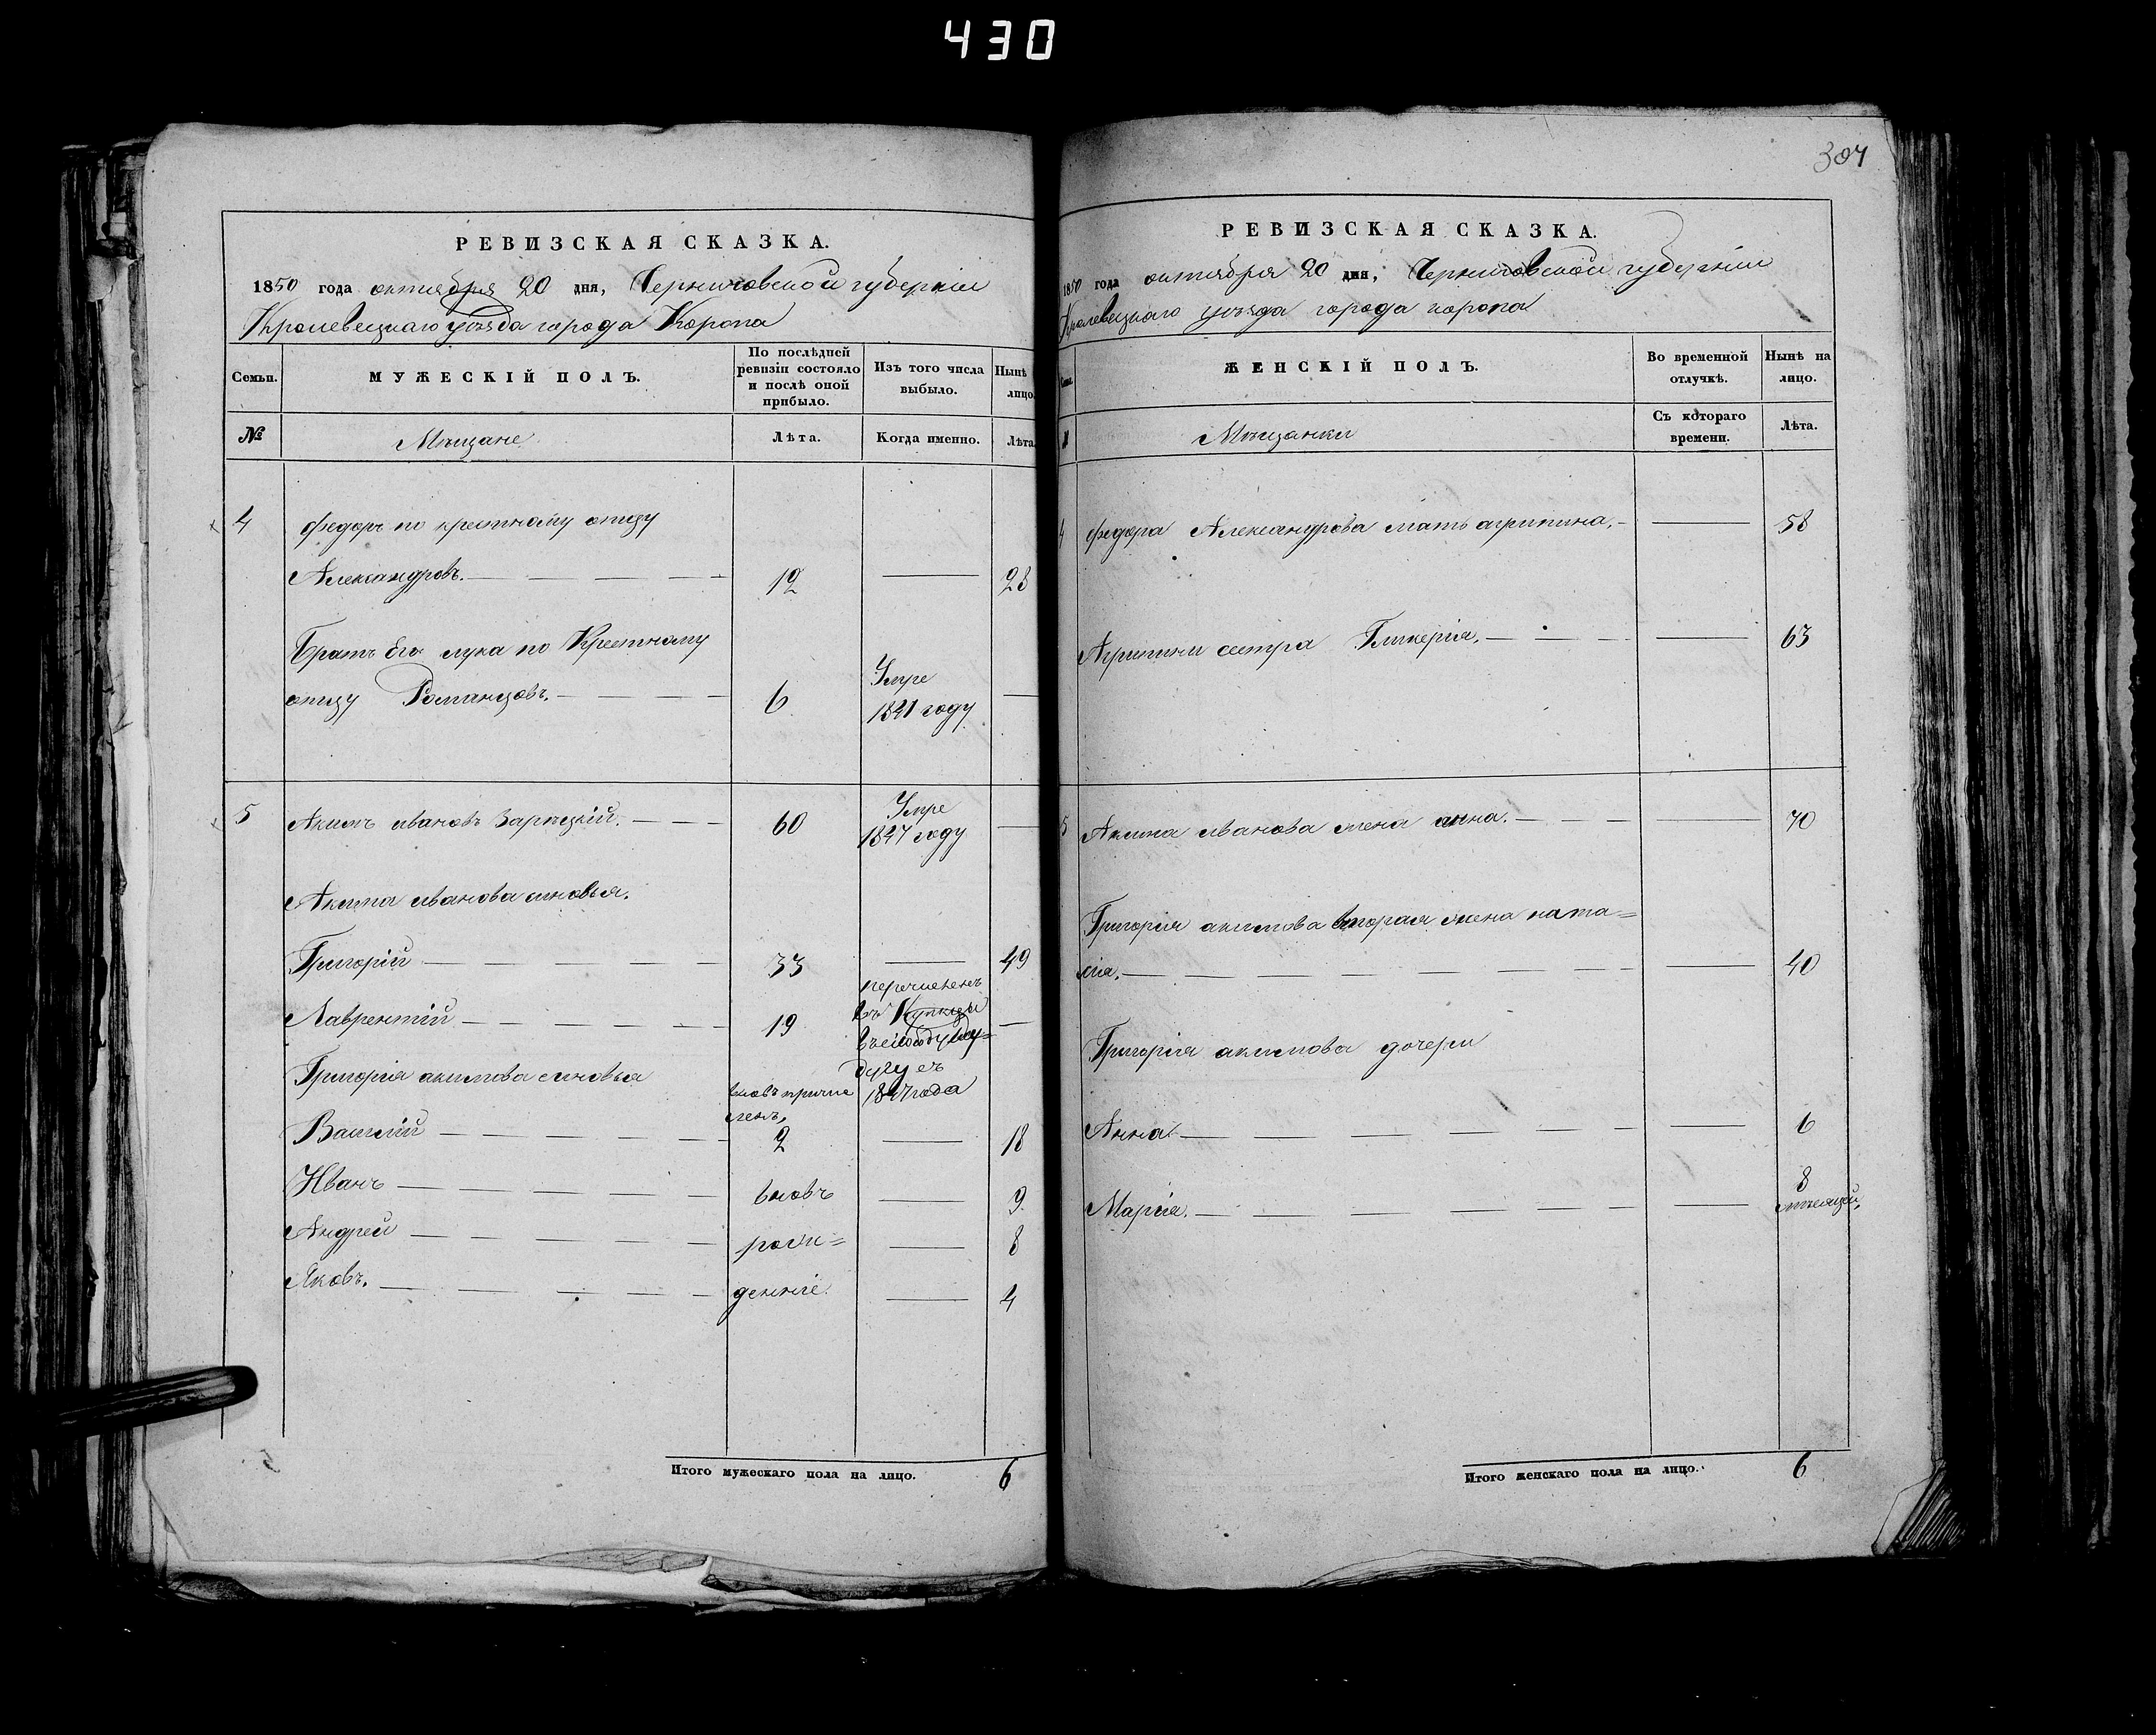 430
РЕВИЗСКАЯ СКАЗКА.
1850 года октября 20 дня, Черниговской губерніи
Кролевецкаго уезда города Коропа
Семьи.
МУЖЕСКІЙ ПОЛЪ.
По послѣдней
ревизіи состояло
и послѣ оной
прибыло.
Изъ того числа
выбыло.
Нынѣ
лицо.
№
Мѣщане
Лѣта.
Когда именно.
Лѣта.
4 Федоръ по крестному отцу
Александровъ. 12 28
Братъ Его лука по Крестному
отцу Романцовъ. 6 Умре
1841 году
5 Акимъ ивановъ Зарѣцкій. 60 Умре
1847 году
Акима иванова сыновья.
Григорій 33 49
Лаврентій 19 перечисленъ
въ Купцы
съ
1847 года
Григорія акимова сыновья
вновъ причи
сленъ.
Василій 2 18
Иванъ вновъ 9
Андрей рож= 8
Яковъ. деніе. 4
Итого мужескаго пола на лицо. 6
304
РЕВИЗСКАЯ СКАЗКА.
1850 года октября 20 дня, Черниговской губерніи
Кролевецкаго уѣзда города коропа
ЖЕНСКІЙ ПОЛЪ.
Во временной
отлучкѣ.
Нынѣ на
лицо.
Мѣщанки
Съ котораго
времени.
Лѣта.
4 Федора Александрова мать агрипина. 58
Агрипини сестра Гликерія. 63
5 Акима иванова жена анна. 70
Григорія акимова вторая жена ната=
лія. 40
Григорія акимова дочери
Анна 6
Марія. 8
мѣсяцей.
Итого женскаго пола на лицо. 6